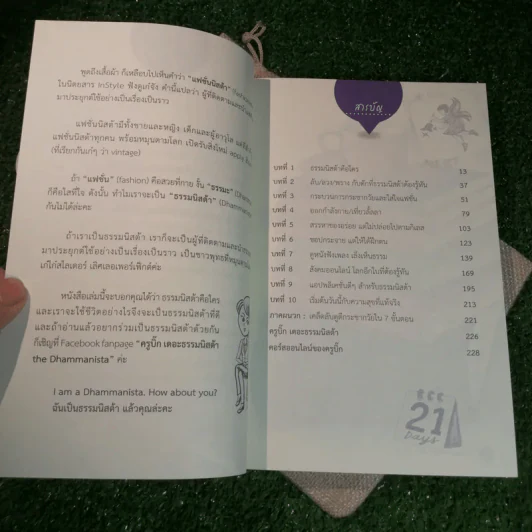 พูดถึงเสื้อผ้า ก็เหลือบไปเห็นคำว่า "แฟชั่นนิสต้า"
ในนิตยสาร InStyle ฟังดูเก๋จัง คำนี้แปลว่า ผู้ที่ติดตาม
มาประยุกต์ใช้อย่างเป็นเรื่องเป็นราว
แฟชั่นนิสต้ามีทั้งชายและหญิง เด็กและผู้อาวุโส
แฟชั่นนิสต้าทุกคน พร้อมหมุนตามโลก เปิดรับสิ่งใหม่
(ที่เรียกกันเก๋ๆ ว่า vintage)
ถ้า "แฟชั่น" (fashion) คือสวยที่กาย งั้น "ธรรมะ"
ก็คือใสที่ใจ ดังนั้น ทำไมเราจะเป็น "ธรรมนิสต้า" (Dhammanista)
กันไม่ได้ล่ะคะ
ถ้าเราเป็นธรรมนิสต้า เราก็จะเป็นผู้ที่ติดตามและนำธรรมะ
มาประยุกต์ใช้อย่างเป็นเรื่องเป็นราว เป็นชาวพุทธที่หมุนตาม
เก๋ไก๋สไลเดอร์ เลิศเลอเพอร์เฟ็กต์ค่ะ
หนังสือเล่มนี้จะบอกคุณได้ว่า ธรรมนิสต้าคือใคร
และเราจะใช้ชีวิตอย่างไรจึงจะเป็นธรรมนิสต้าที่ดี
และถ้าอ่านแล้วอยากร่วมเป็นธรรมนิสต้าด้วยกัน
ก็เชิญที่ Facebook fanpage "ครูบิ๊ก เดอะธรรมนิสต้า
the Dhammanista" ค่ะ
I am a Dhammanista. How about you?
ฉันเป็นธรรมนิสต้า แล้วคุณล่ะคะ
สารบัญ
บทที่ 1 ธรรมนิสต้า คือใคร 13
บทที่ 2 กับดักที่ธรรมนิสต้าต้องรู้ทัน 37
บทที่ 3 51
บทที่ 4 ออกกำลังกาย/เที่ยวสิ้นหา 79
บทที่ 5 สรรหาของอร่อย แต่ไม่ปล่อยไปตามกิเลส 103
บทที่ 6 ชอปกระจาย แต่ให้ได้ฝึกตน 123
บทที่ 7 ดูหนังฟังเพลง เริงเท้าธรรม 139
บทที่ 8 สังคมออนไลน์ โลกอีกใบที่ต้องรู้ทัน 169
บทที่ 9 แอปพลิเคชันดีๆ สำหรับธรรมนิสต้า 195
บทที่ 10 เริ่มต้นวันนี้กับความสุขที่แท้จริง 213
ภาคผนวก : เคล็ดลับดูดีกระชากวัยใน 7 ขั้นตอน 221
ครูบิ๊ก เดอะธรรมนิสต้า 226
คอร์สออนไลน์ของครูบิ๊ก 228
21
Days